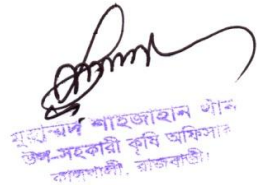 মুহাম্মদ শাহজাহান খান
উপ-সহকারী কৃষি অফিসার
কালুখালী, রাজবাড়ী।